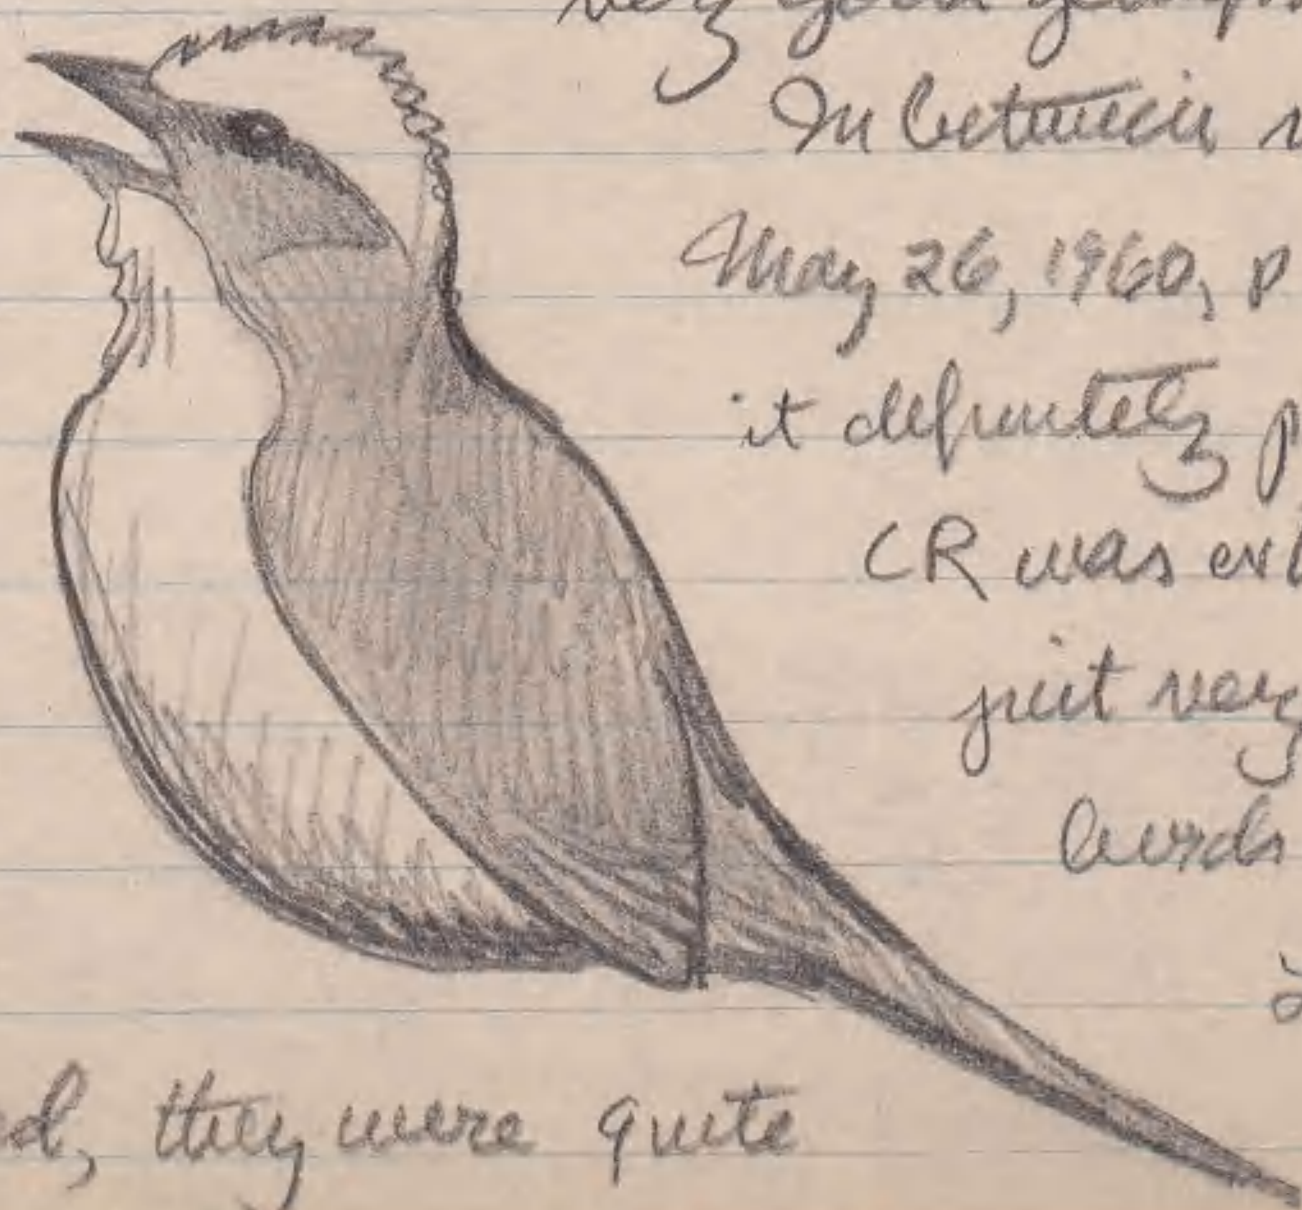 very good
In between
May 26, 1960, p
it definitely p
CR was
just very
birds
ed, they were quite